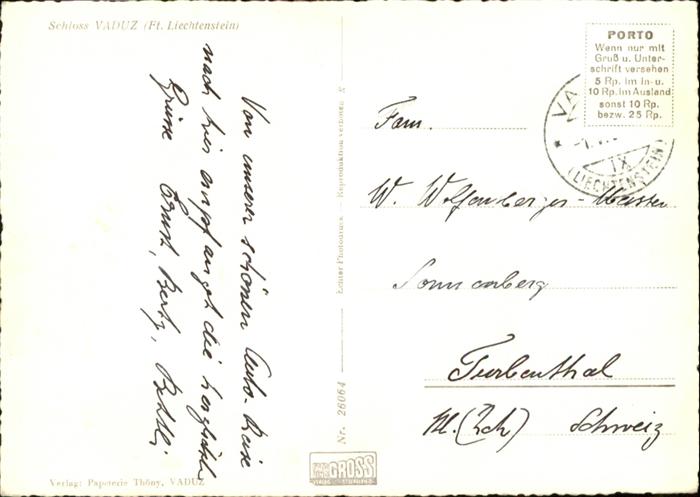 Schloss VADUZ (Ft. Liechtenstein)
Von unserer schönen Auto-Reise
nach hier empfanget die herzlich
Grüsse Ernst, Berty,
Verlag: Papeterie Thöny, VADUZ
Nr. 26064
Echter Photodruck — Reproduktion verboten
GROSS
PORTO
Wenn nur mit
Gruß u. Unter-
schrift versehen
5 Rp. im In- u.
10 Rp. im Ausland
sonst 10 Rp.
bezw. 25 Rp.
VA
IX
(LIECHTENSTEIN)
Fam.
W. Wolfensberger-
Sonnenberg
Turbenthal
Kt. (Zch) Schweiz